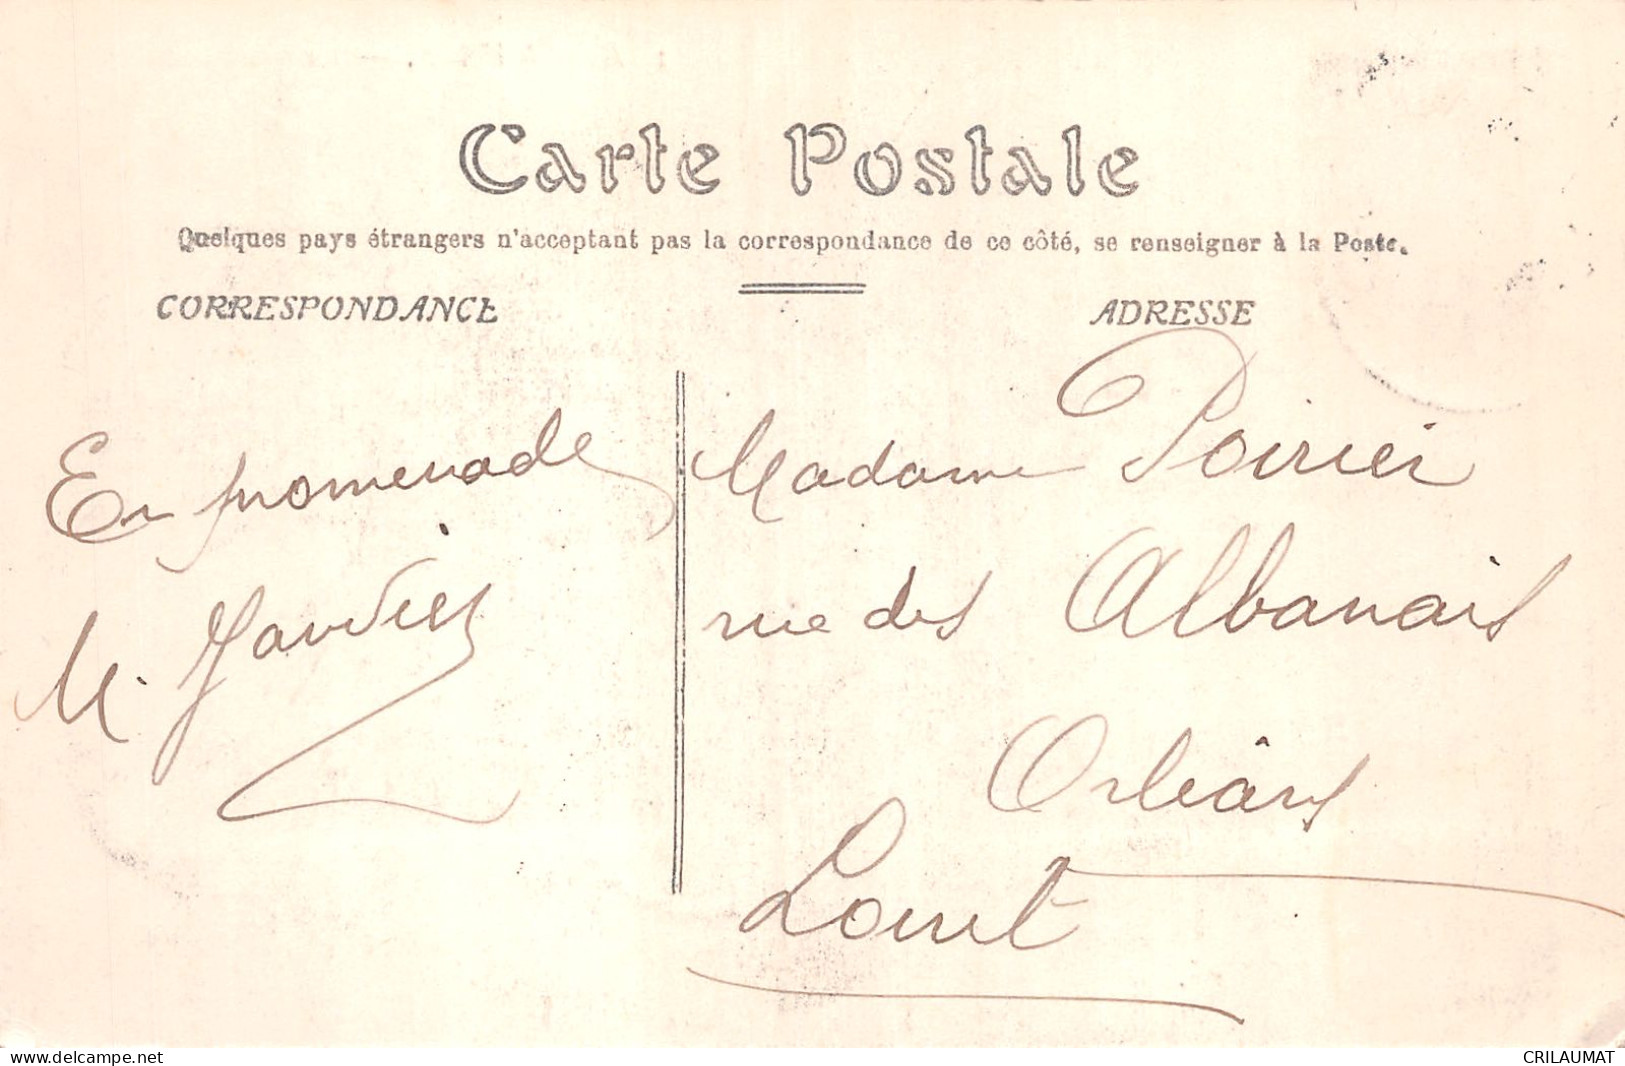 Carte Postale
Quelques pays étrangers n'acceptant pas la correspondance de ce côté, se renseigner à la Poste.
CORRESPONDANCE
ADRESSE
En promenade
M.
Madame Poirier
rue des Albanais
Orléans
Loiret
www.delcampe.net
CRILAUMAT